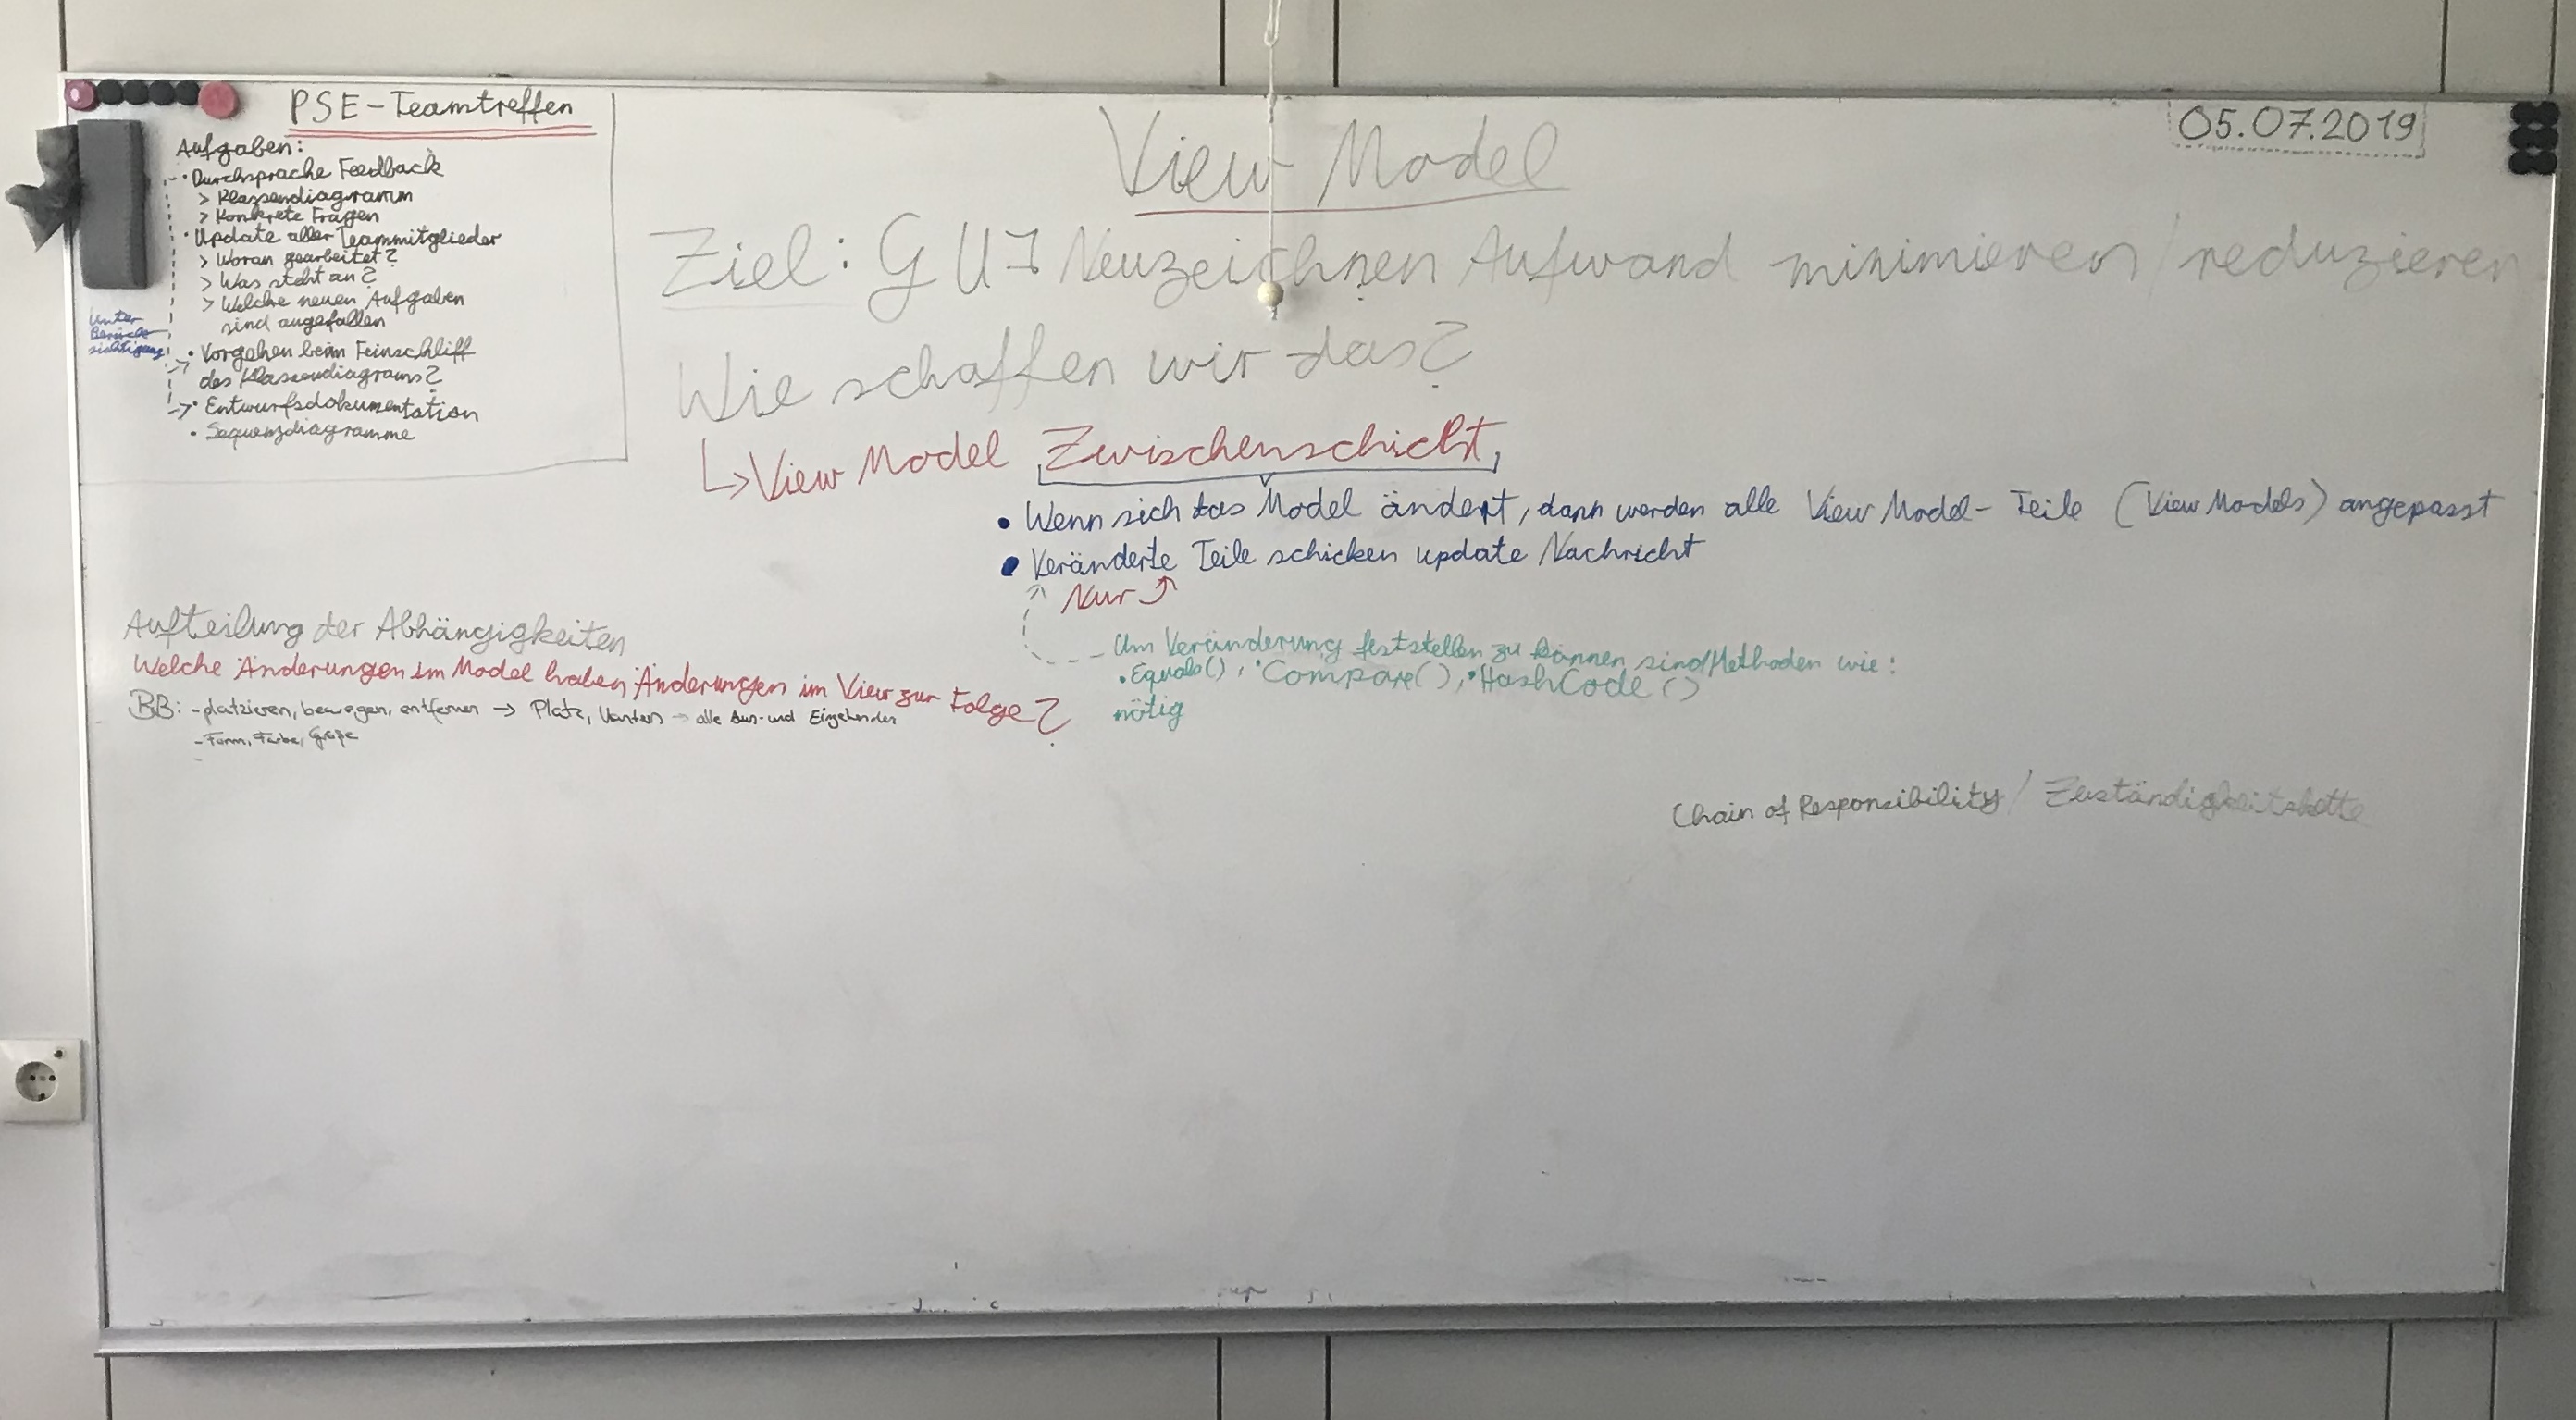 PSE-Teamtreffen
Aufgaben:
· Durchsprache Feedback
> Klassendiagramm
> Konkrete Fragen
· Update aller Teammitglieder
> Woran gearbeitet?
> Was steht an?
> Welche neuen Aufgaben
sind angefallen
Unter
Berück-
sichtigung
· Vorgehen beim Feinschliff
des Klassendiagrams?
· Entwurfsdokumentation
· Sequenzdiagramme
View Model
05.07.2019
Ziel: GUI Neuzeichnen Aufwand minimieren / reduzieren
Wie schaffen wir das?
↳ View Model Zwischenschicht
• Wenn sich das Model ändert, dann werden alle View Model-Teile (View Models) angepasst
• Veränderte Teile schicken update Nachricht
Nur
Um Veränderung feststellen zu können sind Methoden wie:
• Equals(), • Compare(), • HashCode()
nötig
Aufteilung der Abhängigkeiten
Welche Änderungen im Model haben Änderungen im View zur Folge?
BB: - platzieren, bewegen, entfernen → Platz, → alle Aus- und Eingehenden
- Form, Farbe, Größe
Chain of Responsibility / Zuständigkeitskette